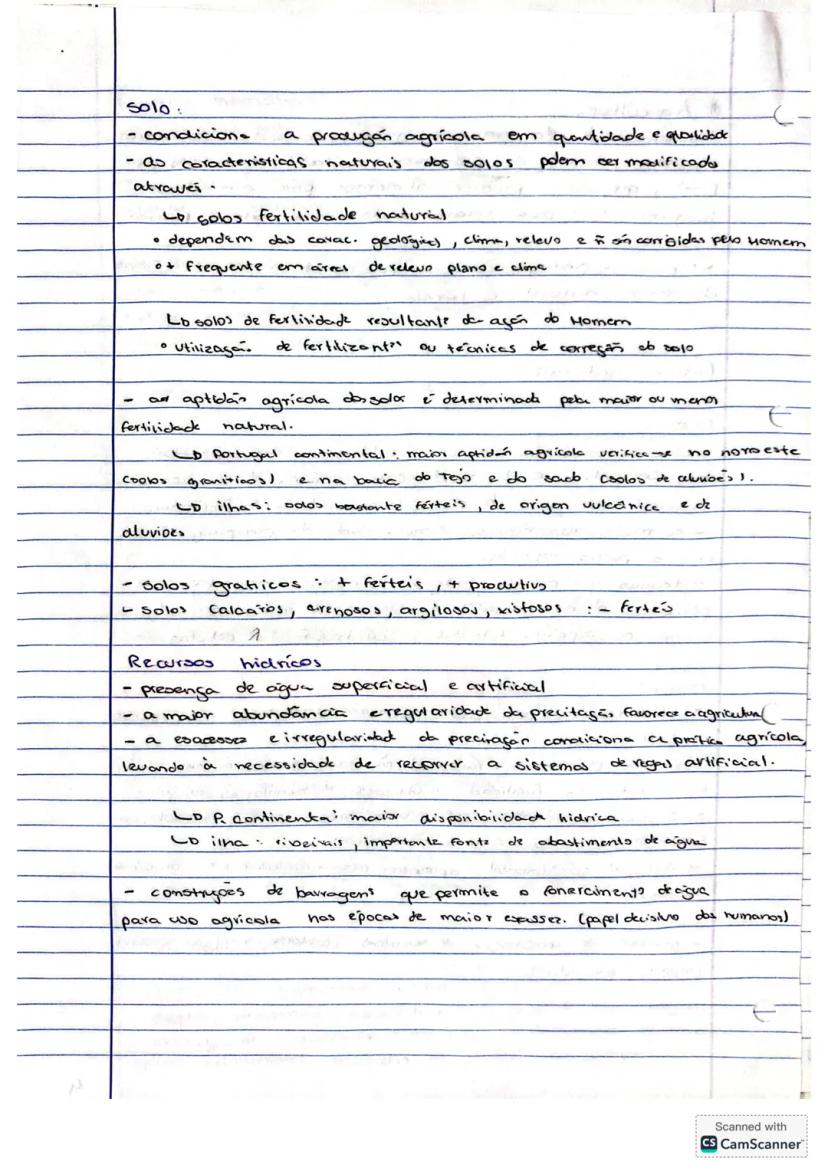 solo:
- condiciona a produção agrícola em quantidade e qualidade
- as características naturais dos solos podem ser modificada
atraves.
↳ solos fertilidade natural
• dependem das carac. geológicas, clima, relevo e ñ são corrigidas pelo Homem
• + frequente em áreas de relevo plano e clima
↳ solos de fertilidade resultante da ação do Homem
• utilização de fertilizantes ou técnicas de correção do solo
- a aptidão agrícola dos solos é determinada pela maior ou menor
fertilidade natural.
↳ Portugal continental: maior aptidão agrícola verifica-se no noroeste
(solos graníticos) e na bacia do Tejo e do sado (solos de aluviões).
↳ ilhas: solos bastante férteis, de origem vulcânica e de
aluviões
- solos graticos : + ferteis, + produtivo
- solos calcários, arenosos, argilosos, xistosos : - ferteis
Recursos hidrícos
- presença de água superficial e artificial
- a maior abundância e regularidade da precitação favorece a agricultura
- a esacessez e irregularidad da preciração condiciona a prática agrícola,
levando à necessidade de recorrer a sistemas de regas artificial.
↳ P. Continental: maior disponibilidade hidrica
↳ ilha : ribeirais, importante fonte de abastimento de água
- construções de barragens que permite o fonercimento de água
para uso agrícola nas épocas de maior escassez. (papel decisivo dos humanos)
Scanned with
CS CamScanner